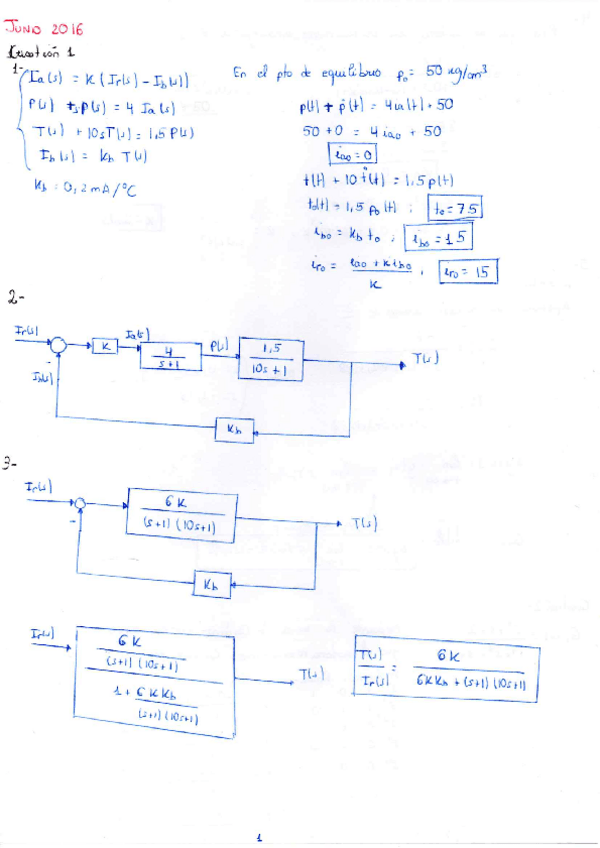 JUNIO 2016
Cuestión 1
1-
Ia(s) = K (Ir(s) - Ib(s))
P(s) + sP(s) = 4 Ia(s)
T(s) + 10sT(s) = 1,5 P(s)
Ib(s) = Kb T(s)
Kb = 0,2 mA/°C
En el pto de equilibrio p₀ = 50 kg/cm³
p(t) + ṗ(t) = 4ia(t) + 50
50 + 0 = 4 ia0 + 50
ia0 = 0
t(t) + 10 ṫ(t) = 1,5 p(t)
t₀(t) = 1,5 p₀(t) ; t₀ = 75
ib0 = Kb t₀ ; ib0 = 15
ir0 = (ia0 + K ib0) / K ; ir0 = 15
2-
Ir(s) K Ia(s) 4/(s+1) P(s) 1,5/(10s+1) T(s)
-
Ib(s)
Kb
3-
Ir(s) 6K/((s+1)(10s+1)) T(s)
-
Kb
Ir(s) (6K/((s+1)(10s+1))) / (1 + 6KKb/((s+1)(10s+1))) T(s)
T(s)/Ir(s) = 6K/(6KKb + (s+1)(10s+1))
1